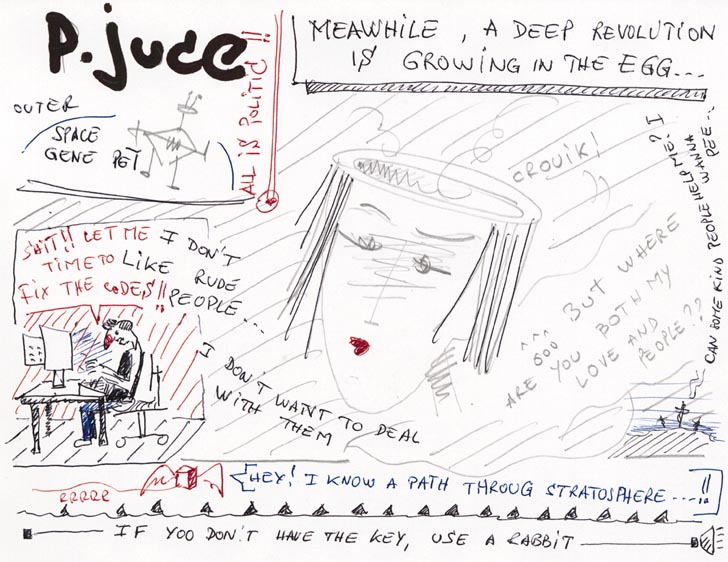 P.juce
MEAWHILE, A DEEP REVOLUTION
IS GROWING IN THE EGG...
OUTER
SPACE
GENE PET
ALL IS POLITIC!!
CROUIK!
CAN SOME KIND PEOPLE HELP ME? I
WANNA PEE...
LET ME
TIME TO
FIX THE CODES!!
I DON'T
LIKE RUDE
PEOPLE...
I DON'T WANT TO DEAL
WITH THEM
BUT WHERE
ARE YOU BOTH MY
LOVE AND
PEOPLE??
RRRRR
HEY! I KNOW A PATH THROUG STRATOSPHERE....!!
IF YOO DON'T HAVE THE KEY, USE A RABBIT